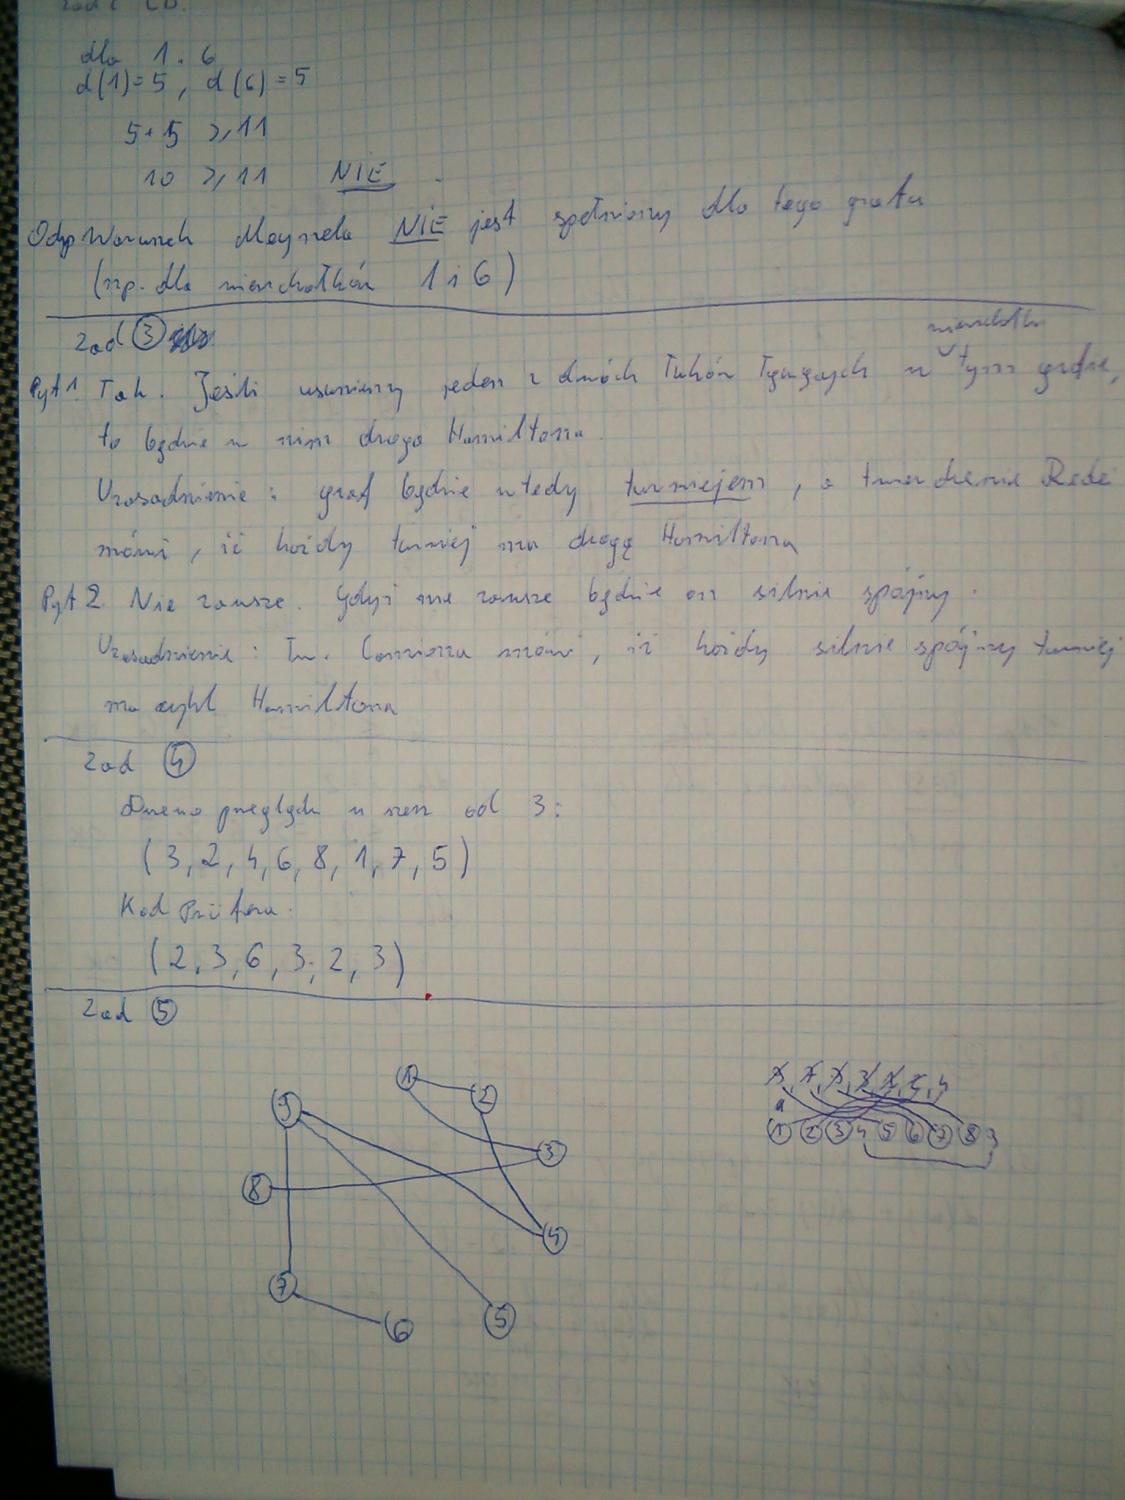 dla 1 i 6
d(1)=5, d(6)=5
5+5 ≥ 11
10 ≥ 11 NIE
Odp Warunek Meyniela NIE jest spełniony dla tego grafu
(np. dla wierzchołków 1 i 6)
zad 3
wierzchołki
Pyt 1. Tak. Jeśli usuniemy jeden z dwóch łuków łączących w tym grafie,
to będzie w nim droga Hamiltona.
Uzasadnienie: graf będzie wtedy turniejem, a twierdzenie Redei
mówi, iż każdy turniej ma drogę Hamiltona
Pyt 2. Nie zawsze. Gdyż nie zawsze będzie on silnie spójny.
Uzasadnienie: Tw. Camiona mówi, iż każdy silnie spójny turniej
ma cykl Hamiltona
zad 4
Drzewo przeglądu w szerz od 3:
(3, 2, 4, 6, 8, 1, 7, 5)
Kod Prüfera:
(2, 3, 6, 3, 2, 3)
zad 5
1
2
9
3
8
4
7
6
5
1 2 3 4 5 6 7 8 9